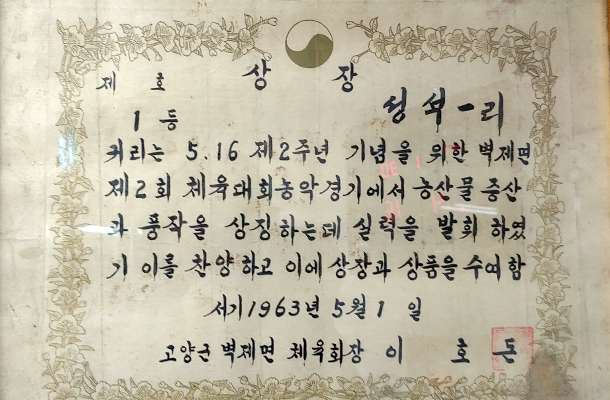 제 호 상 장
성석一리
1등
귀리는 5.16 제2주년 기념을 위한 벽제면
제2회 체육대회농악경기에서 농산물 증산
과 풍작을 상징하는데 실력을 발휘 하였
기 이를 찬양하고 이에 상장과 상품을 수여함
서기1963년 5월 1 일
고양군 벽제면 체육회장 이 호 돈